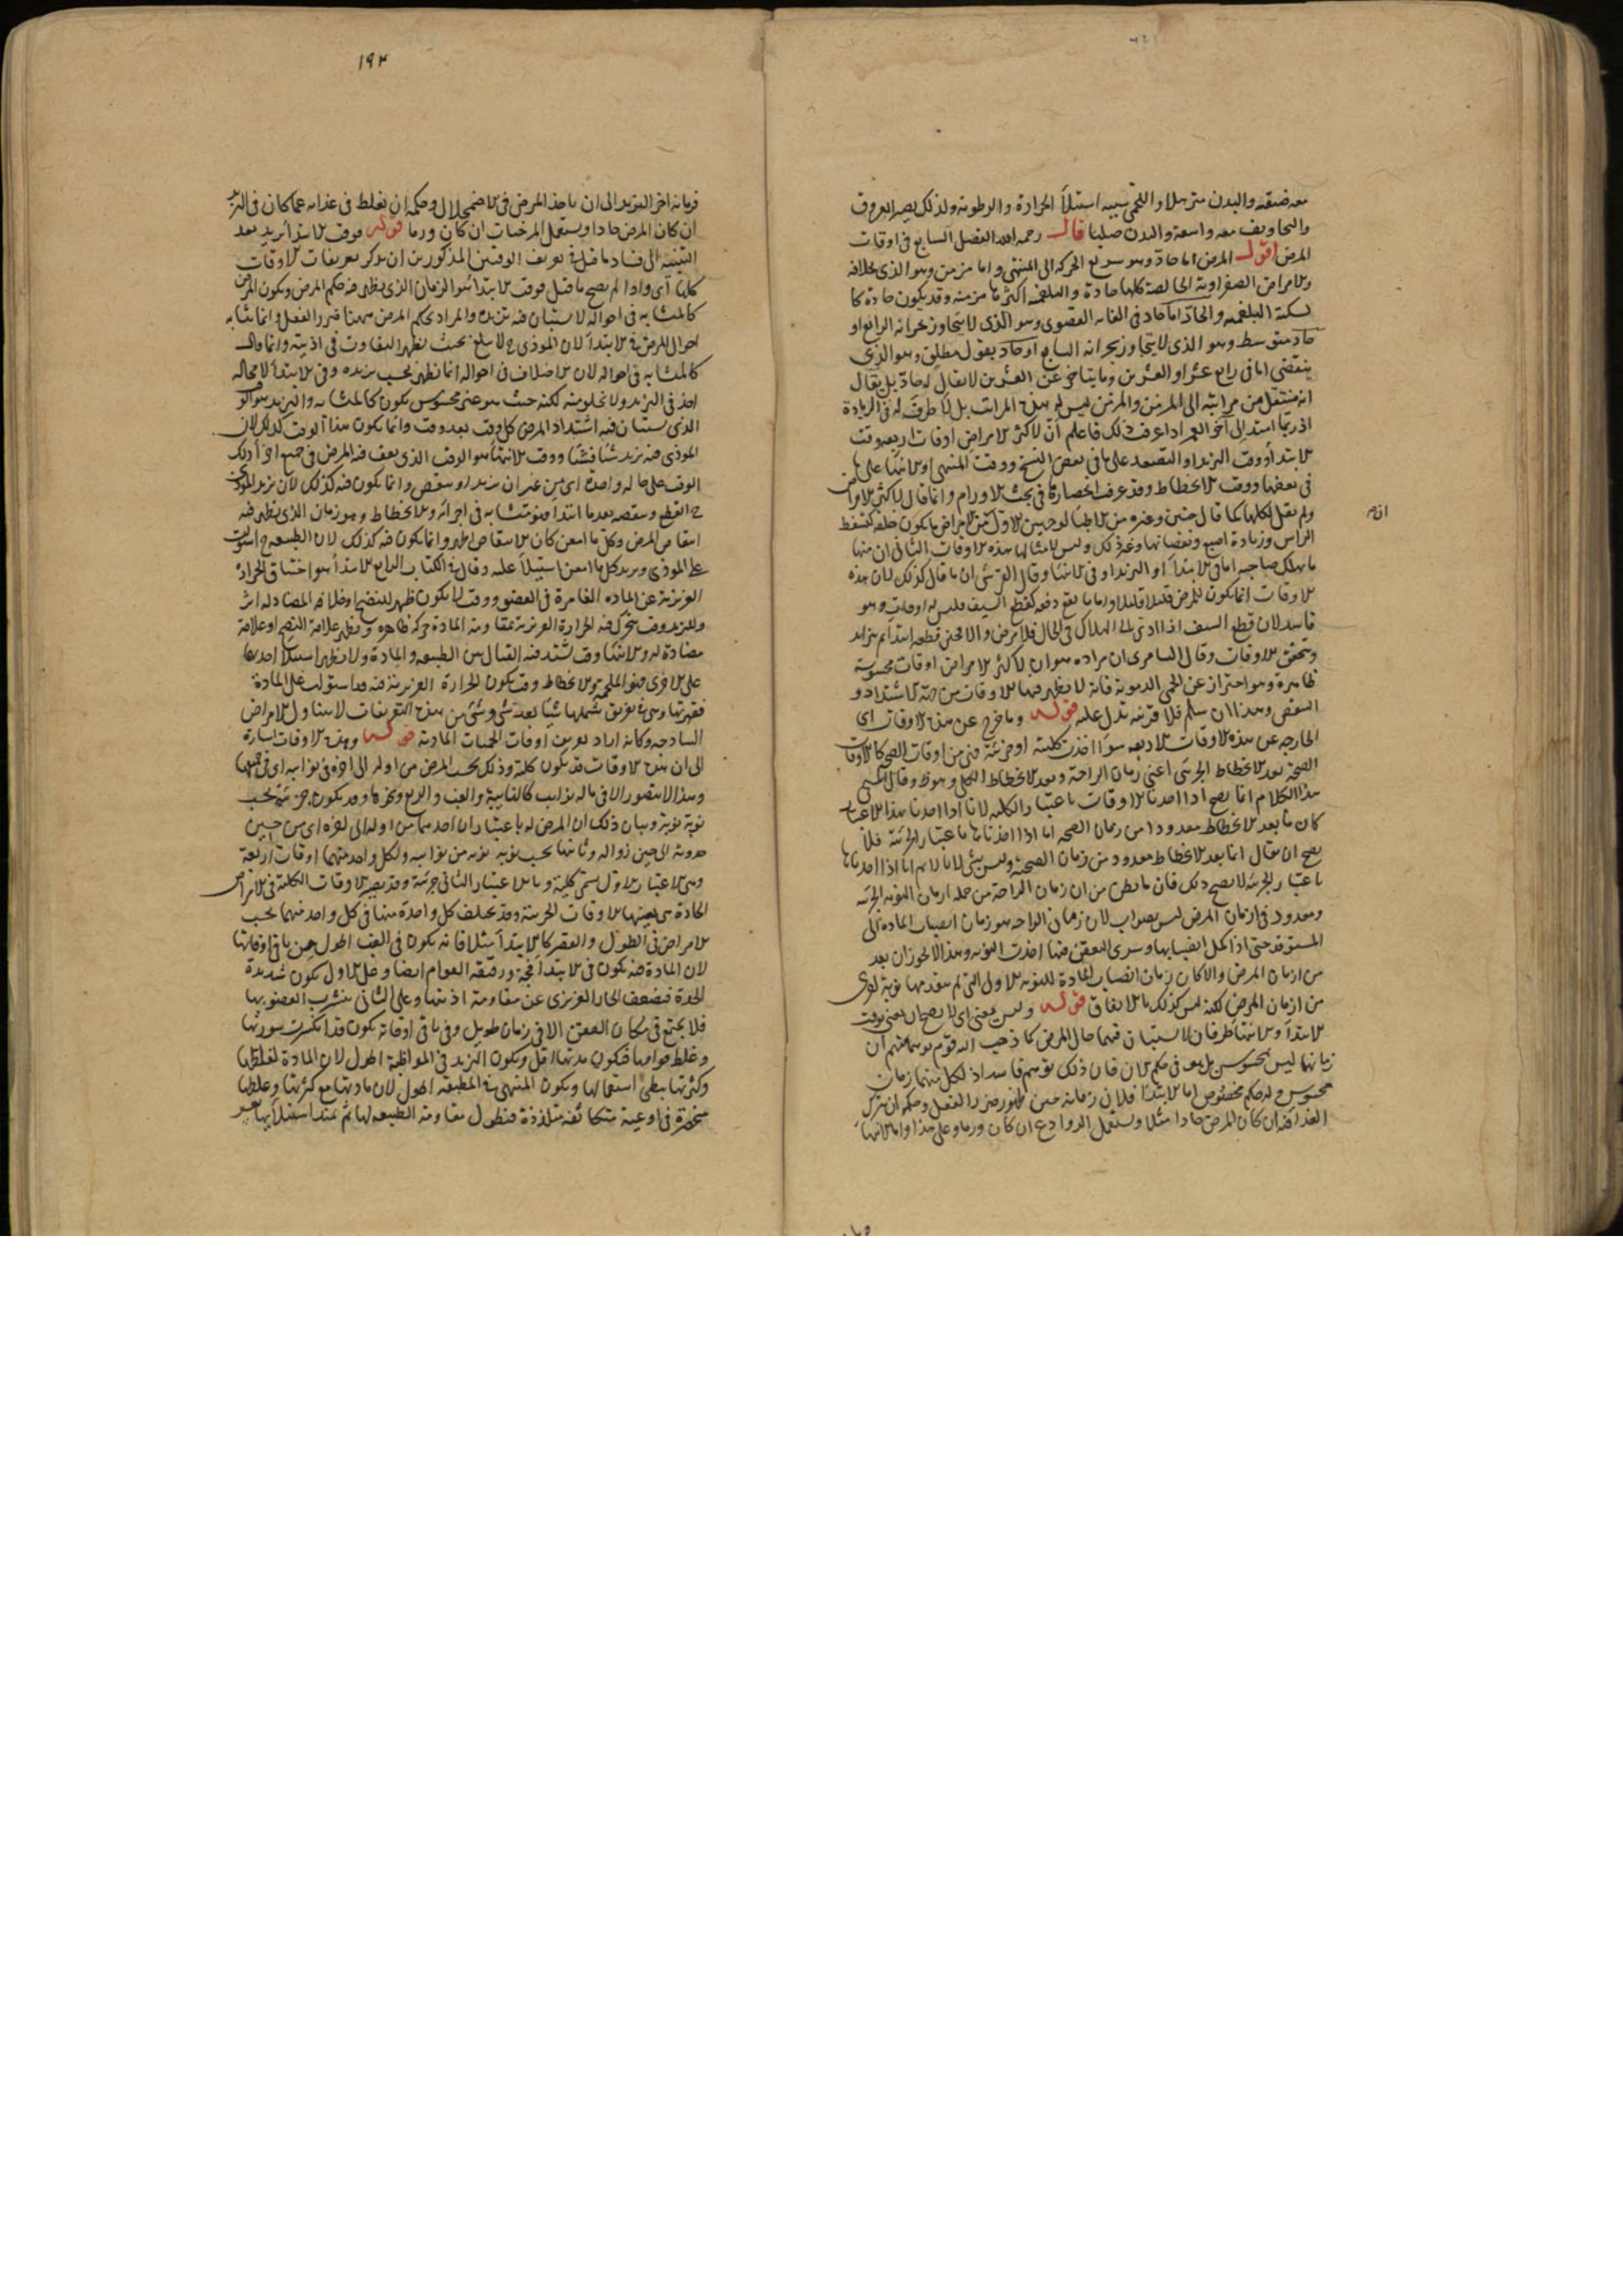 معه ضيقة والبدن مترهلا واللحمي سببه استيلاء الحرارة والرطوبة ولذلك يصير العروق
والتجاويف معه واسعة والبدن صلبا قال رحمه الله الفصل السابع في اوقات
المرض اقول المرض اما حاد وهو سريع الحركة الى المنتهى واما مزمن وهو الذي بخلافه
والامراض الصفراوية الخالصة كلها حادة والبلغمية اكثرها مزمنة وقد يكون حادة كا
لسكتة البلغمية والحاد اما حاد في الغاية القصوى وهو الذي لا يتجاوز بحرانه الرابع او
حاد متوسط وهو الذي لا يتجاوز بحرانه السابع او حاد بقول مطلق وهو الذي
ينقضي اما في رابع عشر او العشرين وما يتأخر عن العشرين لا يقال له حاد بل يقال
انه منتقل من مراتبه الى المزمن والمزمن ليس له هذه المراتب بل لا طرف له في الزيادة
اذ ربما امتد الى آخر العمر اذا عرفت ذلك فاعلم ان لاكثر الامراض اوقات اربعة وقت
الابتداء ووقت التزيد او التصعد على ما في بعض النسخ ووقت المنتهى او الانتهاء على ما
في بعضها ووقت الانحطاط وقد عرف انحصارها في بحث الاورام وانما قال لاكثر الامراض
ولم يقل لكلها كما قال حنين وغيره من الاطباء لوجهين الاول ان من الامراض ما يكون خلقة كسفط
الراس وزيادة اصبع ونقصانها وغير ذلك وليس لامثالها هذه الاوقات الثاني ان منها
ما يهلك صاحبه اما في الابتداء او التزيد او في الانتهاء وقال القرشي ان ما قال كذلك لان هذه
الاوقات انما يكون لمرض قليلا قليلا واما ما يقع دفعة كقطع السيف فليس له اوقات وهو
فاسد لان قطع السيف اذا ادى الى الهلاك في الحال فلا مرض والا فحين قطعه ابتداء ثم يتزايد
ويتحقق الاوقات وقال السامري ان مراده هو ان لاكثر الامراض اوقات محسوسة
ظاهرة وهو احتراز عن الحمى الدموية فانه لا يظهر فيها الاوقات من جهة الاشتداد و
النقص وهذا ان سلم فلا قرينة تدل عليه قوله وما خرج عن هذه الاوقات اي
الخارجة عن هذه الاوقات الاربعة سواء اخذت كلية او جزئية فهي من اوقات الصحة كالاوقات
الصحة بعد الانحطاط الجزئي اعني زمان الراحة وبعد الانحطاط الكلي وهو ظ وقال المسيحي
هذا الكلام انما يصح اذا اخذنا الاوقات باعتبار الكلية لانا اذا اخذنا بهذا الاعتبار
كان ما بعد الانحطاط معدودا من زمان الصحة اما اذا اخذناها باعتبار الجزئية فلا
يصح ان يقال انما بعد الانحطاط معدود من زمان الصحة وليس بشي لانا لا نم انا اذا اخذناها
باعتبار الجزئية لا يصح ذلك فان ما يظن من ان زمان الراحة من جملة ازمان النوبة الجزئية
ومعدود في ازمان المرض ليس بصواب لان زمان الراحة هو زمان انصباب المادة الى
المستوقد حتى اذا كمل انصبابها وسرى التعفن فيها اخذت النوبة وهذا لا يجوز ان يعد
من ازمان المرض والا كان زمان انصباب المادة للنوبة الاولى التي لم يتقدمها نوبة اخرى
من ازمان المرض لكنه ليس كذلك بالاتفاق قوله وليس يعني اي لا يصح ان يعنى بوقت
الابتداء والانتهاء طرفان لا يستبان فيهما حال المرض كما ذهب اليه قوم توهما منهم ان
زمانهما ليس بمحسوس بل هو في حكم الآن فان ذلك توهم فاسد اذ لكل منهما زمان
محسوس وله حكم مخصوص اما الابتداء فلان زمانه حين ظهور ضرر الفعل وحكمه ان يترك
الغذاء فيه ان كان المرض حادا مثلا ويستعمل الروادع ان كان ورما وعلى هذا واما الانتهاء
١٩٣
فزمانه اخر التزيد الى ان ياخذ المرض في الاضمحلال وحكمه ان يغلظ في غذائه عما كان في التزيد
ان كان المرض حادا ويستعمل المرخيات ان كان ورما قوله فوقت الابتداء يريد بعد
التنبيه الى فساد ما قيل في تعريف الوقتين المذكورين ان يذكر تعريفات الاوقات
كلها اي واذا لم يصح ما قيل فوقت الابتداء هو الزمان الذي يظهر فيه حكم المرض ويكون المرض
كالمتشابه في احواله لا يستبان فيه تزيده والمراد بحكم المرض ههنا ضرر الفعل وانما تشابه
احوال المرض في الابتداء لان الموذي ح لا يبلغ بحيث يظهر التفاوت في اذيته وانما قال
كالمتشابه في احواله لان الاختلاف في احواله انما تظهر بحسب تزيده وفي الابتداء لا محالة
اخذ في التزيد ولا تخلو منه لكنه حيث هو غير محسوس يكون كالمتشابه والتزيد هو الوقت
الذي يستبان فيه اشتداد المرض كل وقت بعد وقت وانما يكون هذا الوقت كذلك لان
الموذي فيه تزيد شيئا فشيئا ووقت الانتهاء هو الوقت الذي يقف فيه المرض في جميع اجزاء ذلك
الوقت على حالة واحدة اي من غير ان يتزيد او ينقص وانما يكون فيه كذلك لان تزيد الموذي
ح انقطع ونقصه بعد ما ابتدأ فهو متشابه في اجزائه والانحطاط وهو زمان الذي يظهر فيه
انتقاص المرض وكل ما امعن كان الانتقاص اظهر وانما يكون فيه كذلك لان الطبيعة ح استولت
على الموذي ويزيد كل ما امعن استيلاء عليه وقال في الكتاب الرابع الابتداء هو اختناق الحرارة
الغريزية عن المادة الغامرة في العضو ووقت لا يكون ظهر للنضج او خلافه المضاد له اثر
والتزيد وقت يتحرك فيه الحرارة الغريزية بمقاومة المادة حركة ظاهرة ويظهر علامة النضج او علامة
مضادة له والانتهاء وقت تشتد فيه القتال بين الطبيعة والمادة ولا يظهر استيلاء احدهما
على الاخرى فهو الملحمة والانحطاط وقت يكون الحرارة الغريزية فيه قد استولت على المادة
فقهرتها وهي في تفريق شملها شيئا بعد شي وشي من هذه التعريفات لا يتناول الامراض
الساذجة وكانه اراد تعريف اوقات الحميات المادية قوله وهذه الاوقات اشارة
الى ان هذه الاوقات قد يكون كلية وذلك بحسب المرض من اوله الى اخره في نوائبه اي في جميعها
وهذا لا يتصور الا في ماله نوائب كالنائبة والغب والربع وغيرها وقد يكون جزئية بحسب
نوبة نوبة وبيان ذلك ان المرض له باعتباران احدهما من اوله الى اخره اي من حين
حدوثه الى حين زواله وثانيهما بحسب نوبة نوبة من نوائبه ولكل واحد منهما اوقات اربعة
وهي الاعتبار الاول يسمى كلية وبالاعتبار الثاني جزئية وقد يصير الاوقات الكلية في الامراض
الحادة هي بعينها الاوقات الجزئية وقد يختلف كل واحدة منها في كل واحد منهما بحسب
الامراض في الطول والقصر كالابتداء مثلا فانه يكون في الغب اطول من باقي اوقاتها
لان المادة فيه يكون في الابتداء فجة ورقيقة القوام ايضا وعلى الاول يكون شديدة
الحدة فيضعف الحار الغريزي عن مقاومة اذيتها وعلى الثاني يتشرب العضو بها
فلا يجتمع في مكان العفن الا في زمان طويل وفي باقي اوقاته يكون قد انكسرت سورتها
وغلظ قوامها فيكون مدتها اقل ويكون التزيد في المواظبة اطول لان المادة لغلظها
وكثرتها يبطئ اشتعالها ويكون المنتهى في المطبقة اطول لان مادتها مع كثرتها وغلظها
منحصرة في اوعية متكاثفة متلذذة فتطول مقاومة الطبيعة لها ثم عند استيلائها بعسر